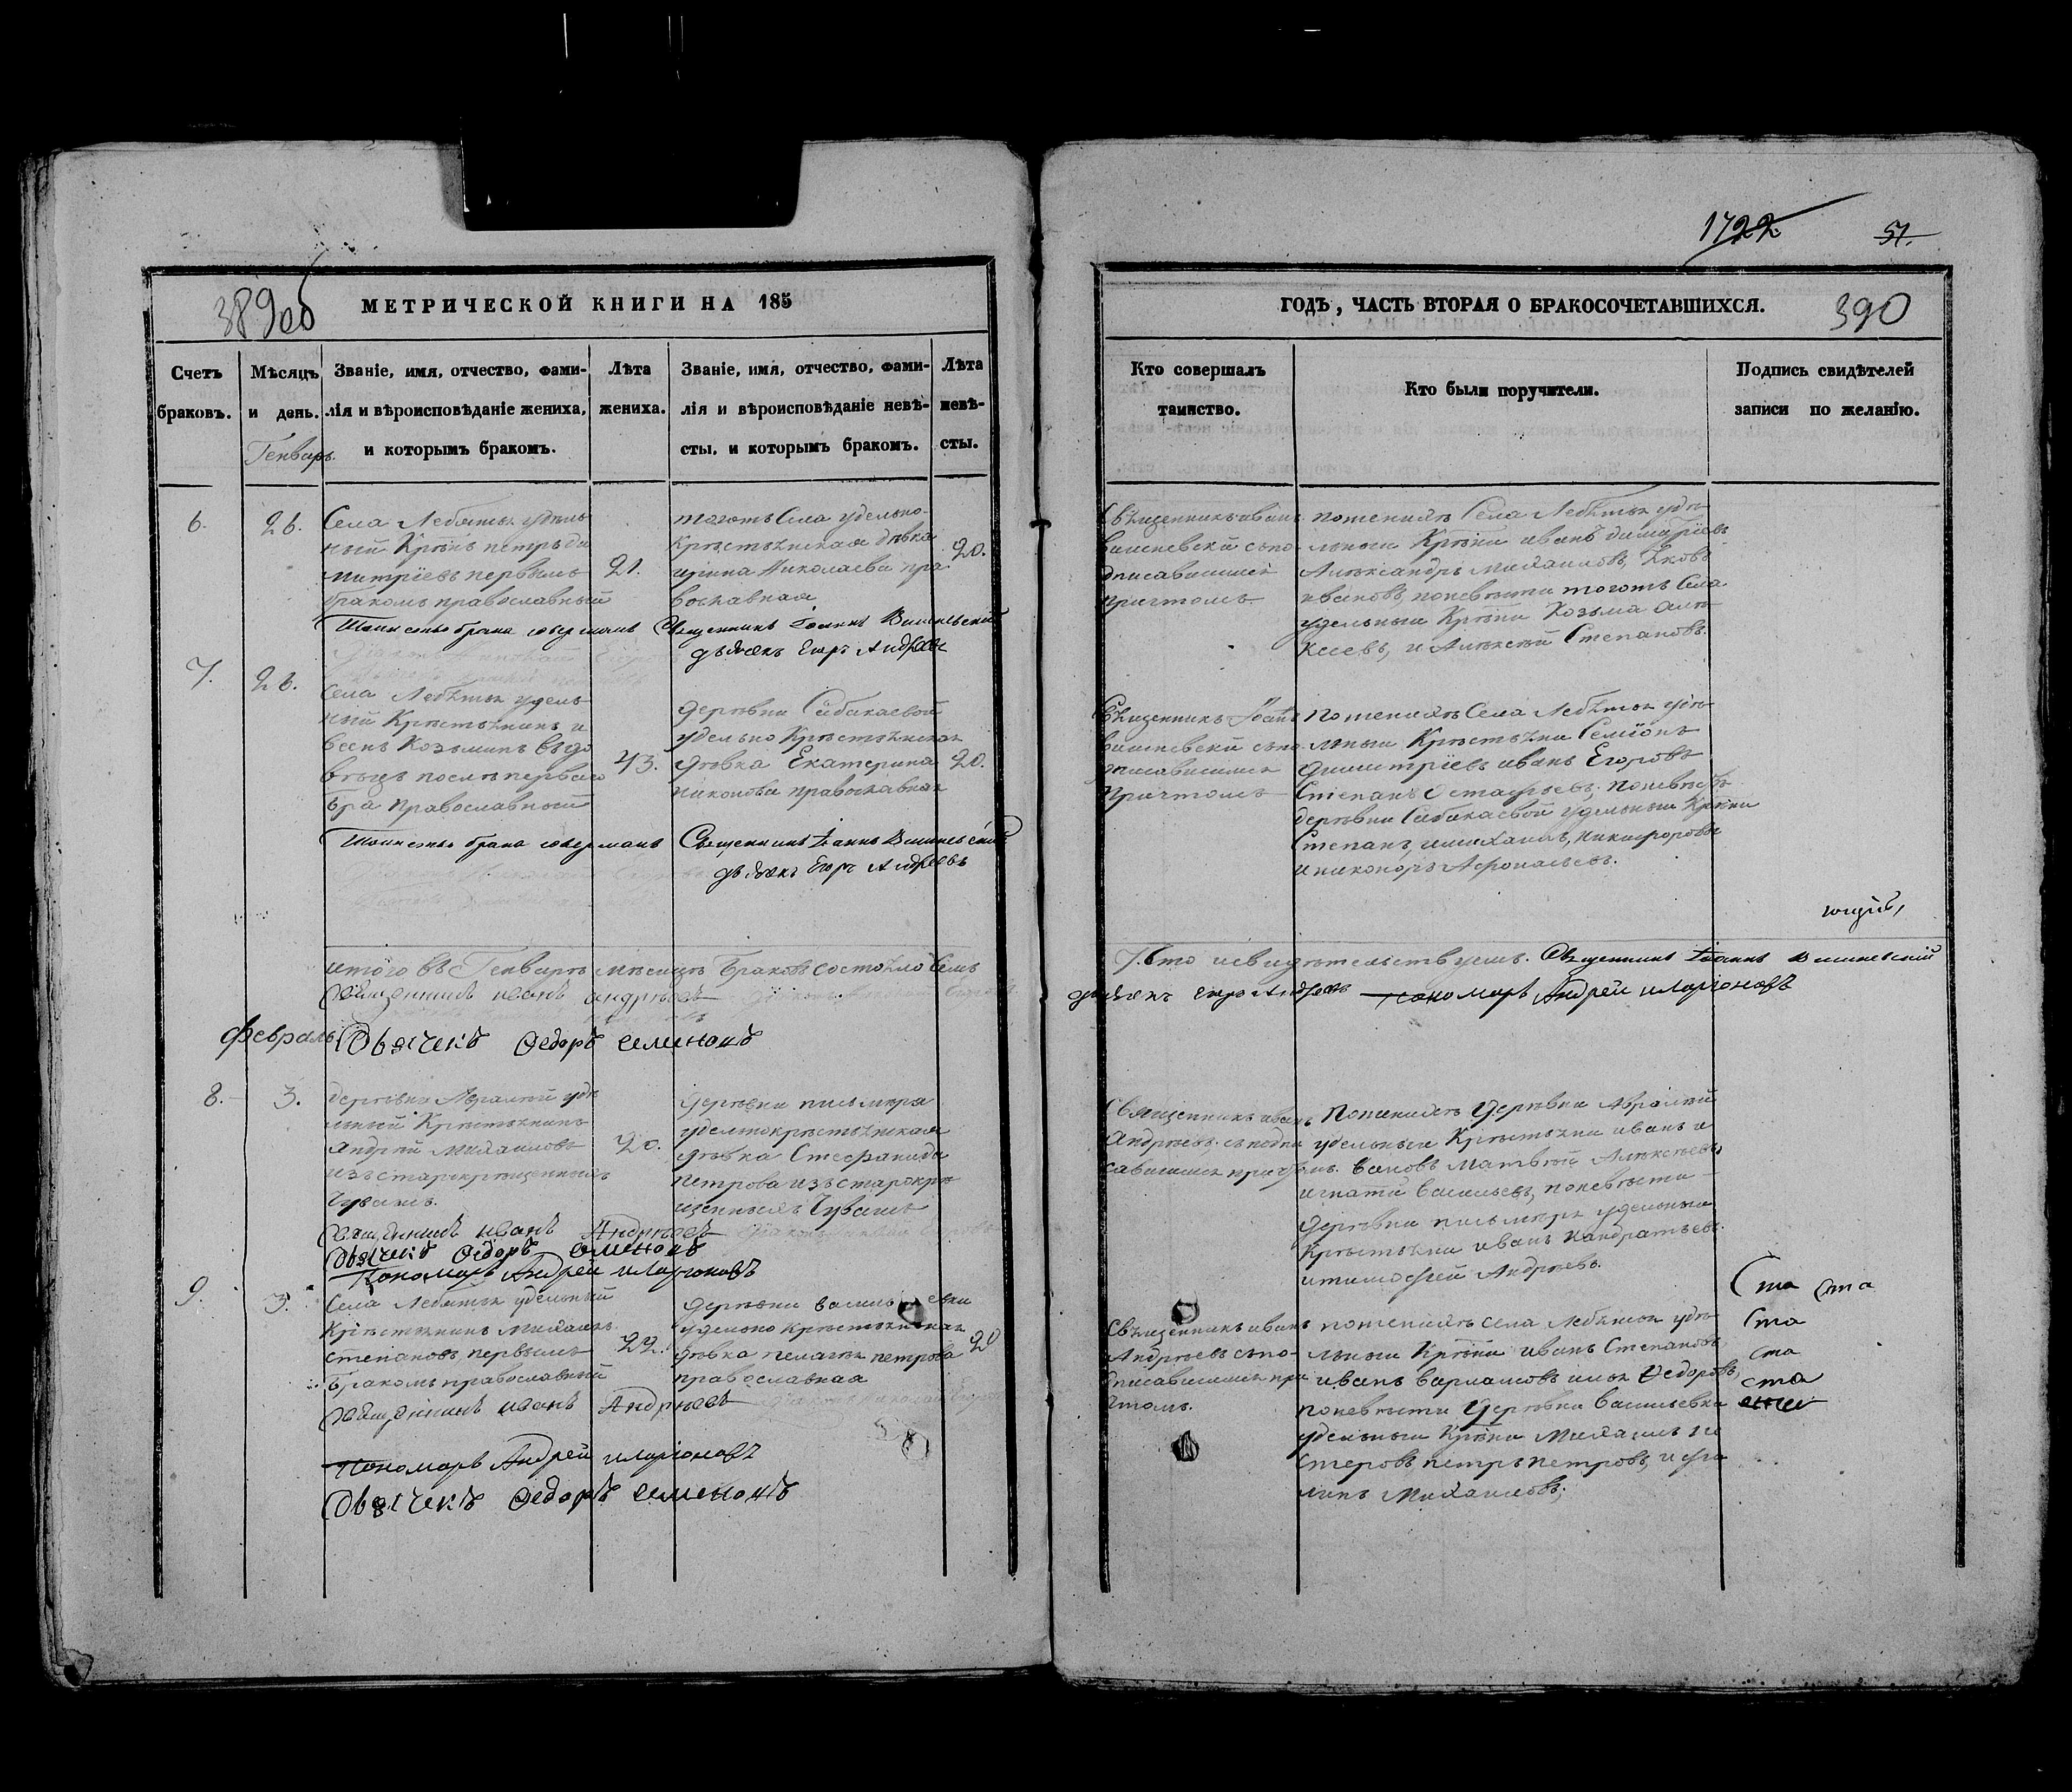 1722
51.
389об
МЕТРИЧЕСКОЙ КНИГИ НА 185
Счетъ браковъ.
Мѣсяцъ и день.
Генварь.
Званіе, имя, отчество, фами-
лія и вѣроисповѣданіе жениха,
и которымъ бракомъ.
Лѣта
жениха.
Званіе, имя, отчество, фами-
лія и вѣроисповѣданіе невѣ-
сты, и которымъ бракомъ.
Лѣта
невѣ-
сты.
6.
26.
Села Лебѣжья удѣль
ный Крѣнъ петръ ди
митріевъ первымъ
бракомъ православный
21.
тогожъ Села удельно
крѣстьянская дѣвка
ирина Николаева пра
вославная
20.
Таинство брака совершалъ Священникъ Іоаннъ Вишневскій
дьячекъ Егоръ Андреевъ
7.
26.
Села Лебѣжья удель
ный Крѣстьянинъ и
Козьминъ вдо
вѣцъ послѣ перваго
бра православный
43.
дерѣвни Сабакаевой
удельно Крѣстьянская
дѣвка Екатерина
никонова православная
20.
Таинство брака совершалъ Священникъ Іоаннъ Вишневскій
дьячекъ Егоръ Андреевъ
итого въ Генварѣ мѣсяцѣ браковъ состояло Семь
Священникъ иванъ андрѣевъ
февраль
Дьячекъ Ѳедоръ Семеновъ
8.
3.
дерѣвни Авралей удѣ
льный Крѣстьянинъ
Андрей Михаиловъ
изъ старокрѣщенныхъ
Чувашъ.
20.
дерѣвни письмѣра
удельнокрѣстьянская
дѣвка Стефанида
петрова изъ старокрѣ
щенныхъ Чувашъ
Священникъ иванъ Андрѣевъ
Дьячекъ Ѳедоръ Семеновъ
Пономарь Андрей иларіоновъ
9.
3.
Села Лебѣжья удельный
Крѣстьянинъ Михаилъ
степановъ первымъ
бракомъ православный
22.
дерѣвни василь евки
удельно крѣстьянская
дѣвка пелагѣя петрова
православная
20
Священникъ иванъ Андрѣевъ
Пономарь Андрей иларіоновъ
Дьячекъ Ѳедоръ Семеновъ
ГОДЪ, ЧАСТЬ ВТОРАЯ О БРАКОСОЧЕТАВШИХСЯ.
390
Кто совершалъ
таинство.
Кто были поручители.
Подпись свидѣтелей
записи по желанію.
Священникъ иванъ
вишневскій съпо
дписавшимся
притчомъ.
поженихѣ Села Лебѣжья удѣ
льныи Крѣни иванъ димитріевъ
Алѣксандръ михаиловъ, Яковъ
ивановъ, поневѣсти тогожъ Села
удельныи Крѣни Козьма алѣ
ксеевъ, и Алѣксей Степановъ.
Священникъ Іоанъ
вишневскій съпо
дписавшимся
притчомъ
поженихѣ Села Лебѣжья удѣ
льныи Крѣстьяни Семіонъ
димитріевъ иванъ Егоровъ
Степанъ Остафьевъ, поневѣстѣ
дерѣвни Сабакаевой удельныи Крѣни
Степанъ, имихаилъ, никифоровы
иниконоръ Афонасьевъ.
7. Что исвидѣтельствуемъ. Священникъ Іоаннъ Вишневскій
дьячекъ Егоръ Андреевъ Пономарь Андрей иларіоновъ
Священникъ иванъ
Андрѣевъ съподпи
савшимся притчомъ.
Поженихѣ дерѣвни Авралей
удельныи Крѣстьяни иванъ и
вановъ Матвѣй Алѣксѣевъ,
игнатій васильевъ, поневѣсти
дерѣвни письмѣра удельныи
Крѣстьяни иванъ Кандратьевъ
итимофей Андрѣевъ.
Священникъ иванъ
Андрѣевъ съпо-
дписавшимся при
тчомъ.
поженихѣ села Лебѣжья удѣ
льныи Крѣни иванъ Степановъ,
иванъ варламовъ илья Ѳедоровъ,
поневѣсти дерѣвни васильевки
удельныи Крѣни Михаилъ не
стеровъ петръ петровъ, и фи
липъ Михаиловъ.
Ста Ста
Ста
ста
ста